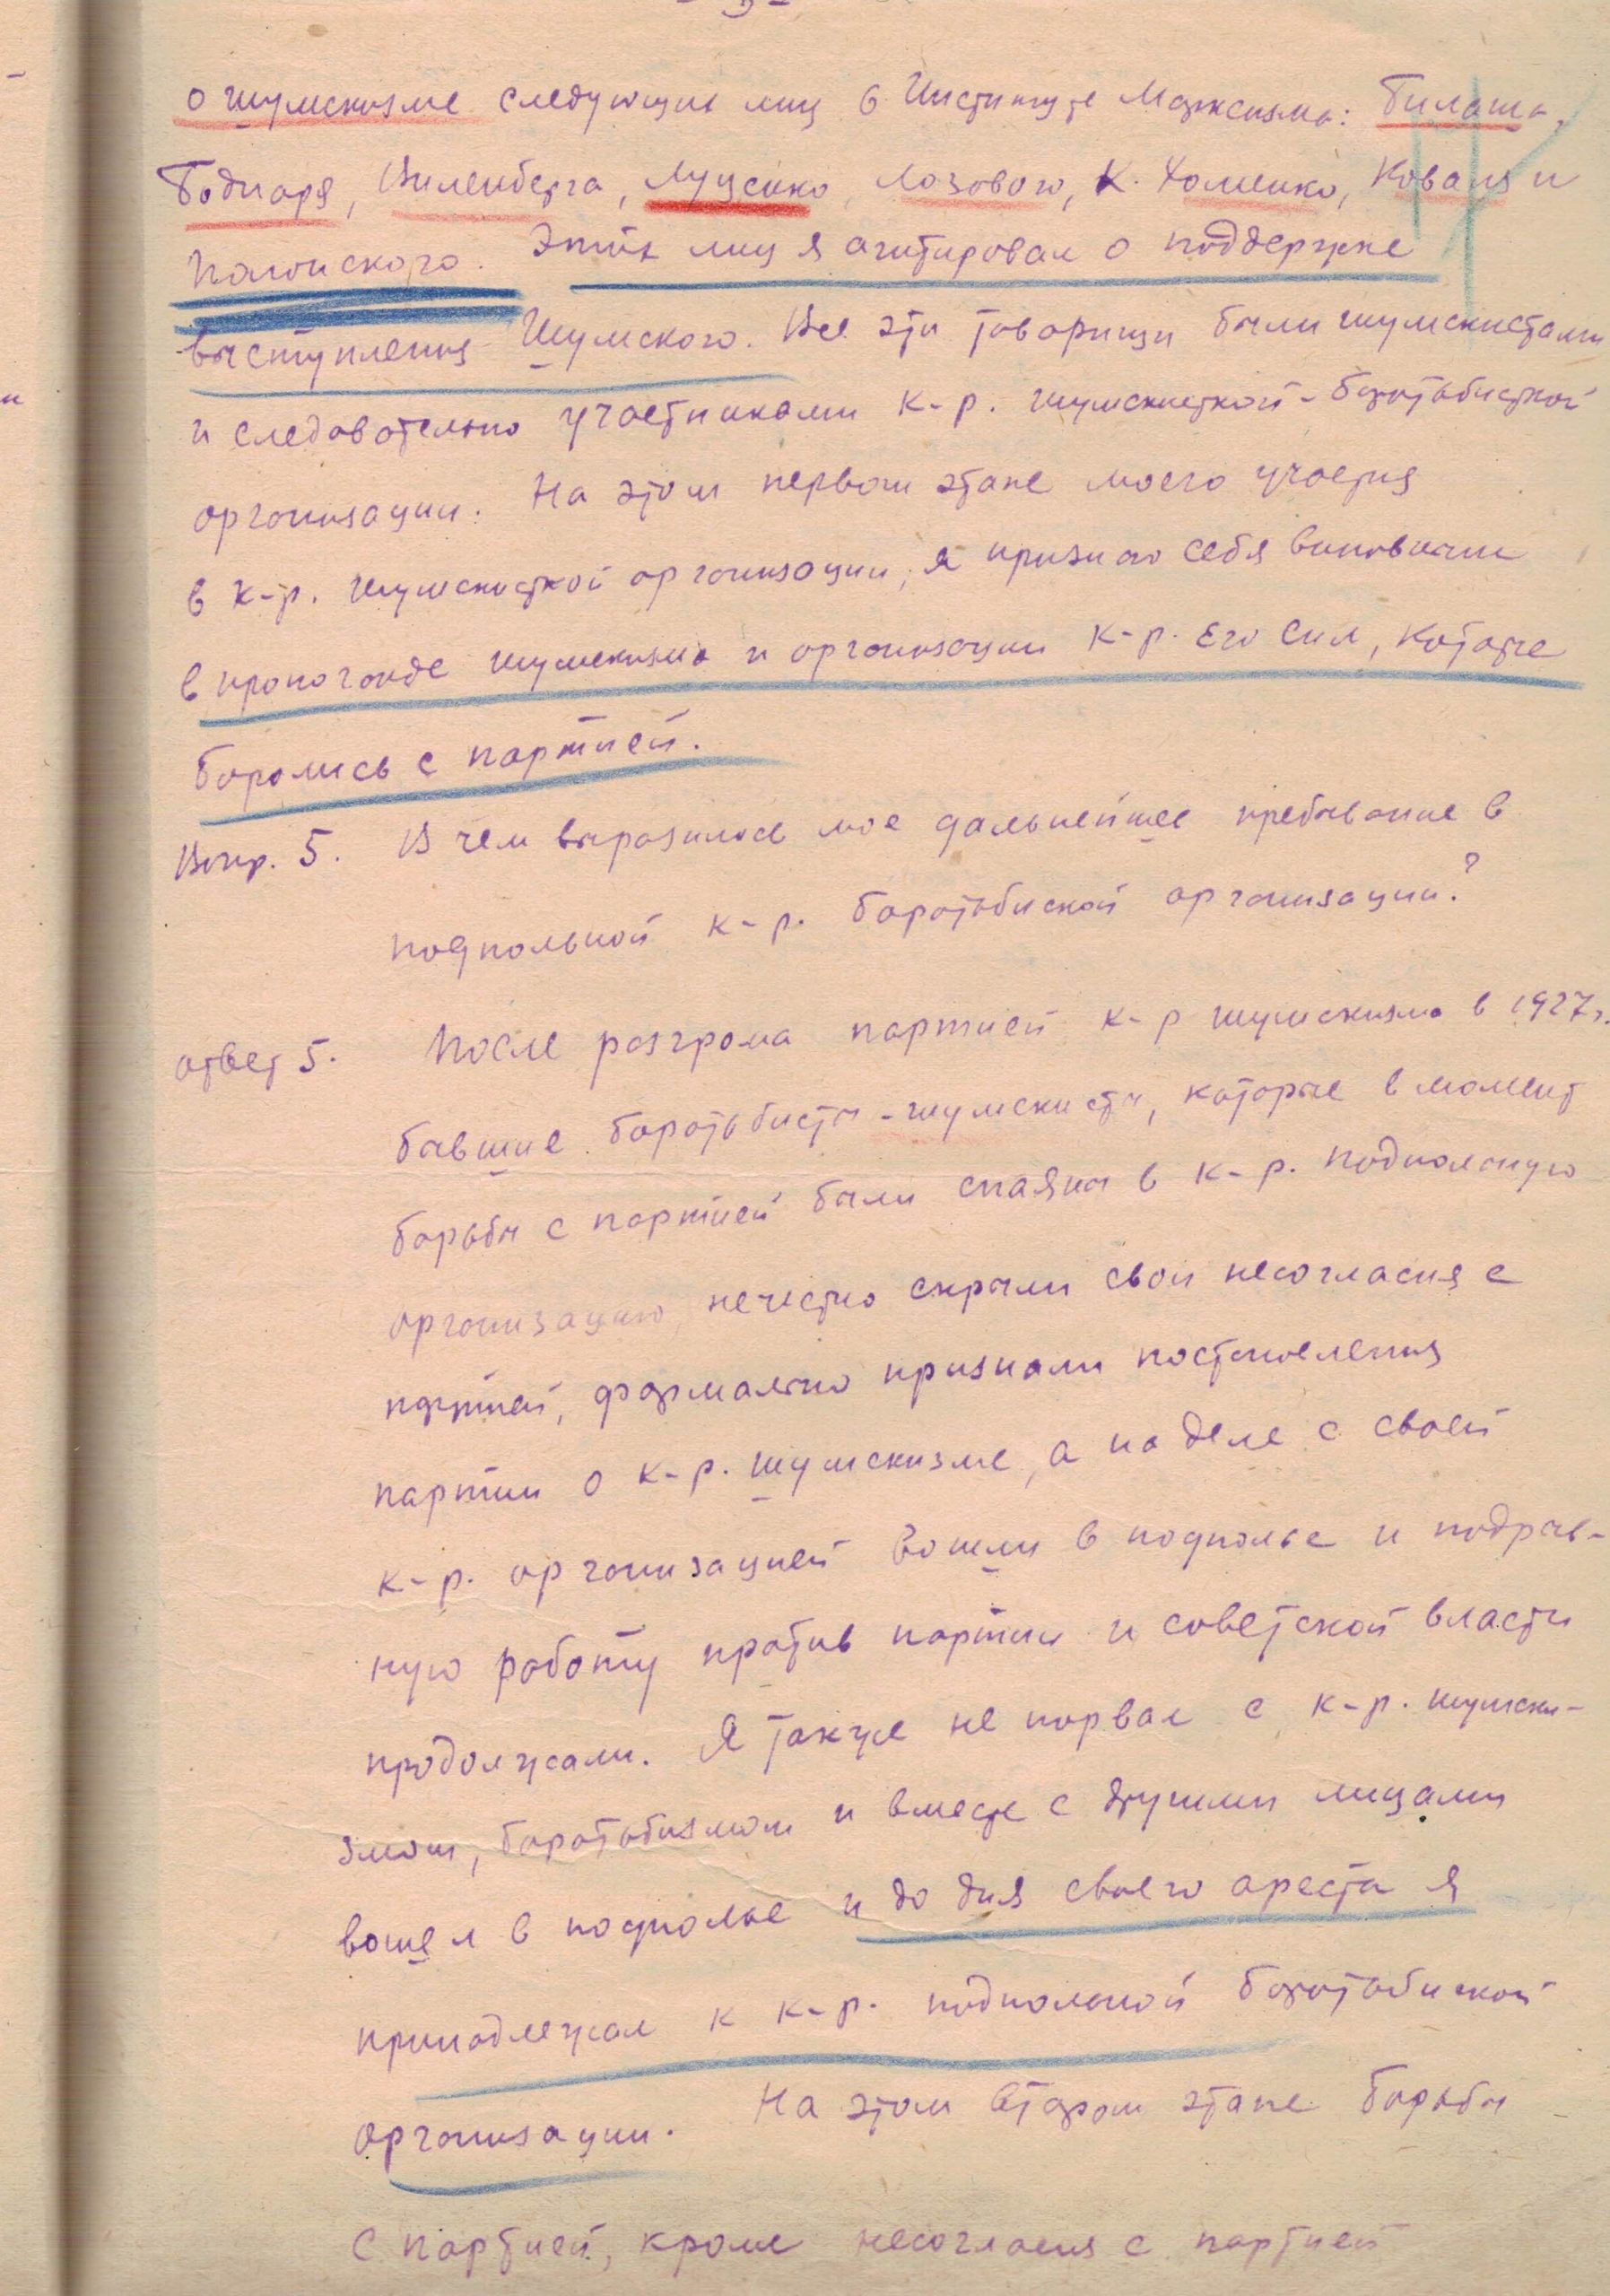 - 5 -
о шумскизме следующих лиц в Институте Марксизма: Билаша,
Боднаря, Виленберга, Луценко, Лозового, К. Хоменко, Коваля и
Этих лиц я агитировал о поддержке
выступления Шумского. Все эти товарищи были шумскистами
и следовательно участниками к-р. шумскисткой-боротьбисткой
организации. На этом первом этапе моего участия
в к-р. шумскисткой организации, я признаю себя виновным
в пропоганде шумскизма и организации к-р. его сил, которые
боролись с партией.
Вопр. 5. В чем выразилось мое дальнейшее пребывание в
подпольной к-р. боротьбиской организации?
ответ 5. После розгрома партией к-р шумскизма в 1927 г.
бывшие боротьбисты-шумскисты, которые в момент
борьбы с партией были спаяны в к-р. подпольную
организацию, нечестно скрыли свои несогласия с
партией, формально признали постановления
партии о к-р. шумскизме, а на деле с своей
к-р. организацией вошли в подполье и подрыв-
ную работу против партии и советской власти
продолжали. Я также не порвал с к-р. шумски-
змом, боротьбизмом и вместе с другими лицами
вошел в подполье и до дня своего ареста я
принадлежал к к-р. подпольной боротьбиской
организации. На этом втором этапе борьбы
с партией, кроме несогласия с партией